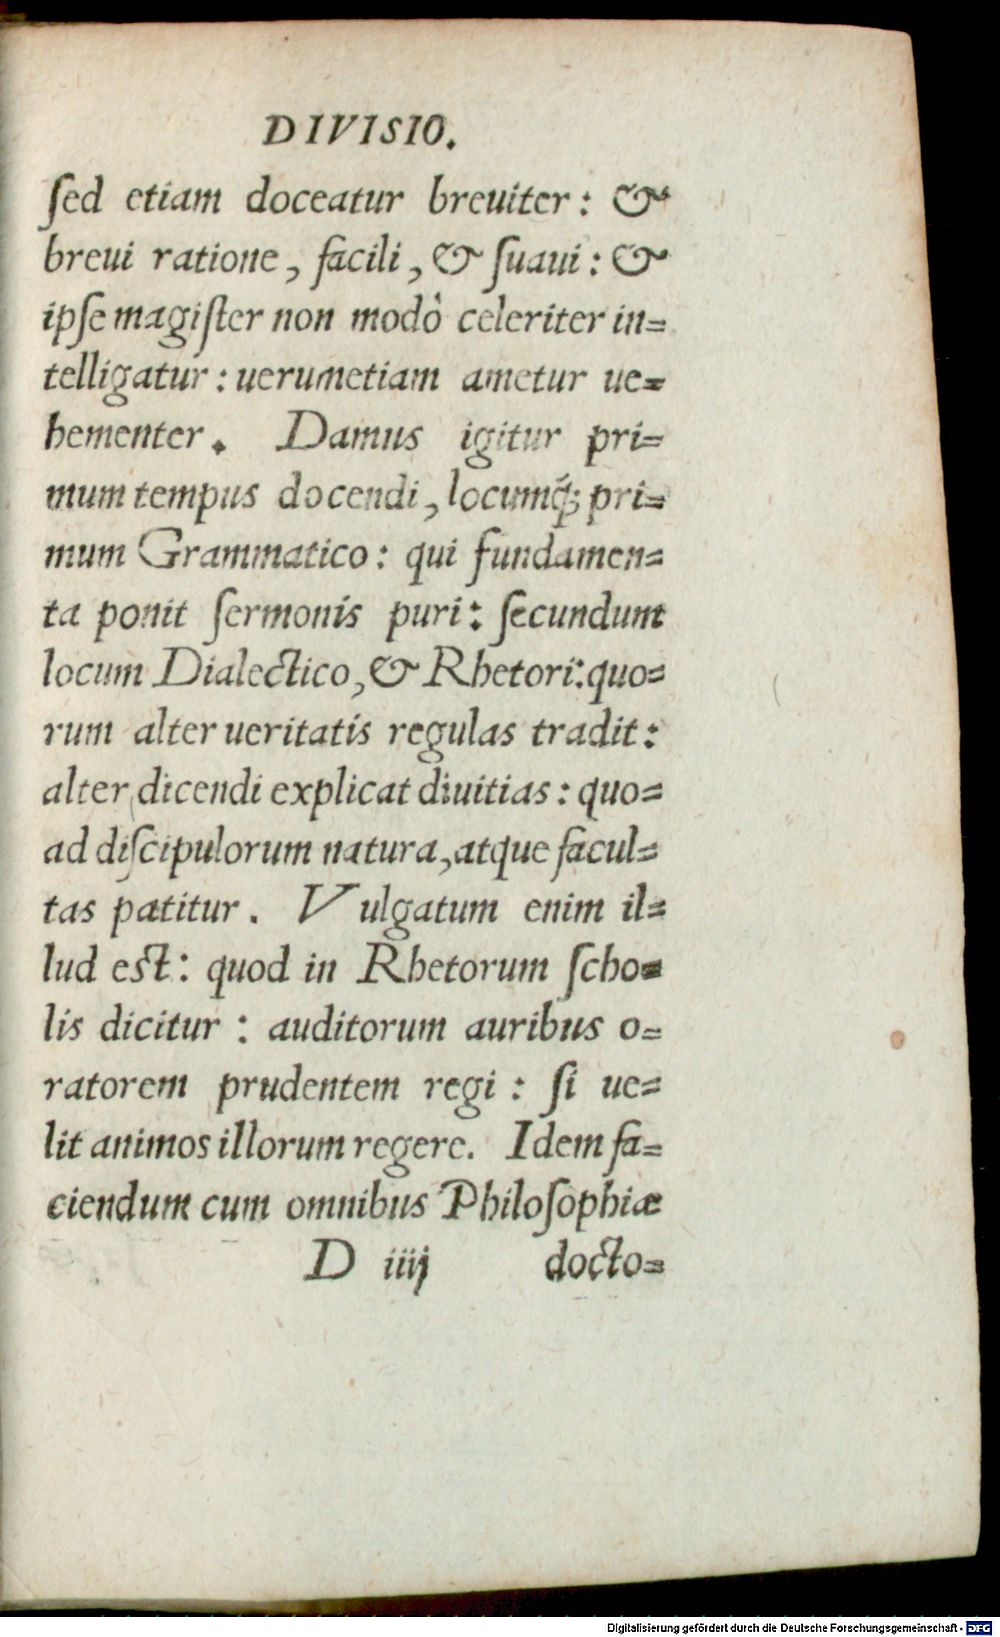 DIVISIO.
ſed etiam doceatur breuiter: &
breui ratione, facili, & ſuaui: &
ipſe magiſter non modò celeriter in=
telligatur: uerumetiam ametur ue=
hementer. Damus igitur pri=
mum tempus docendi, locumq́; pri=
mum Grammatico: qui fundamen=
ta ponit ſermonis puri: ſecundum
locum Dialectico, & Rhetori: quo=
rum alter ueritatis regulas tradit:
alter dicendi explicat diuitias: quo=
ad diſcipulorum natura, atque facul=
tas patitur. Vulgatum enim il=
lud est: quod in Rhetorum ſcho=
lis dicitur: auditorum auribus o=
ratorem prudentem regi: ſi ue=
lit animos illorum regere. Idem fa=
ciendum cum omnibus Philoſophiæ
D iiij docto=
Digitalisierung gefördert durch die Deutsche Forschungsgemeinschaft - DFG